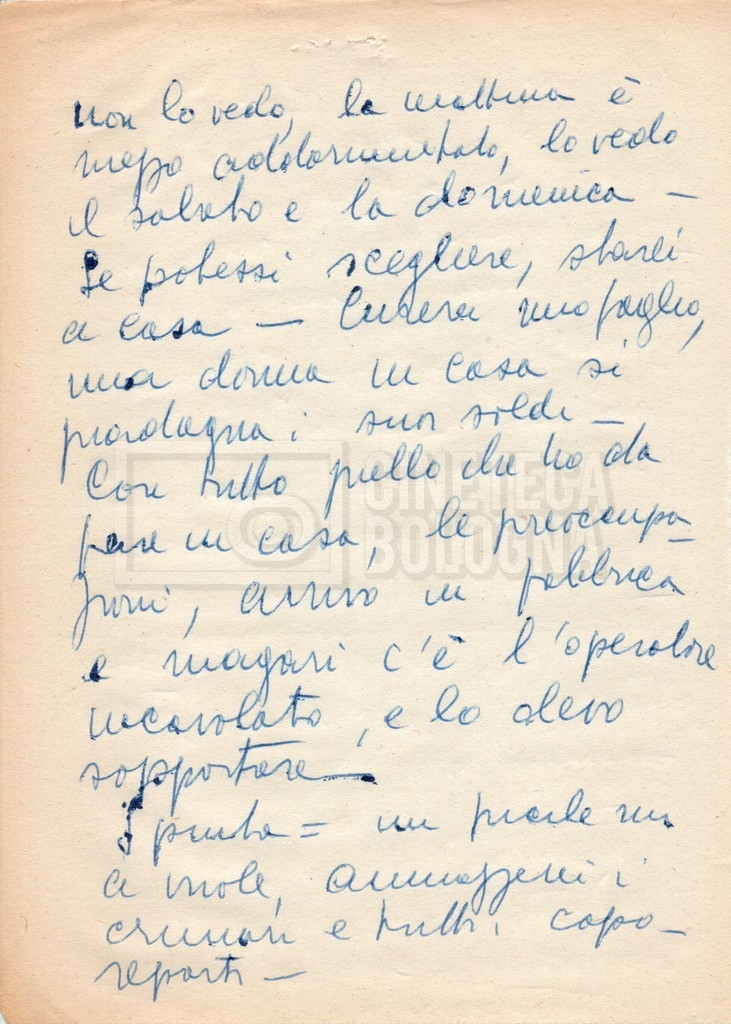 non lo vedo, la mattina è
mezzo addormentato, lo vedo
il sabato e la domenica -
Se potessi scegliere, starei
a casa - Curerei mio figlio,
una donna in casa si
guadagna i suoi soldi -
Con tutto quello che ho da
fare in casa, le preoccupa-
zioni, arrivo in fabbrica
e magari c'è l'operatore
incavolato, e lo devo
sopportare -
Spunta = un
a viole, ammazzerei i
e tutti i capo-
reparti -
CINETECA
BOLOGNA